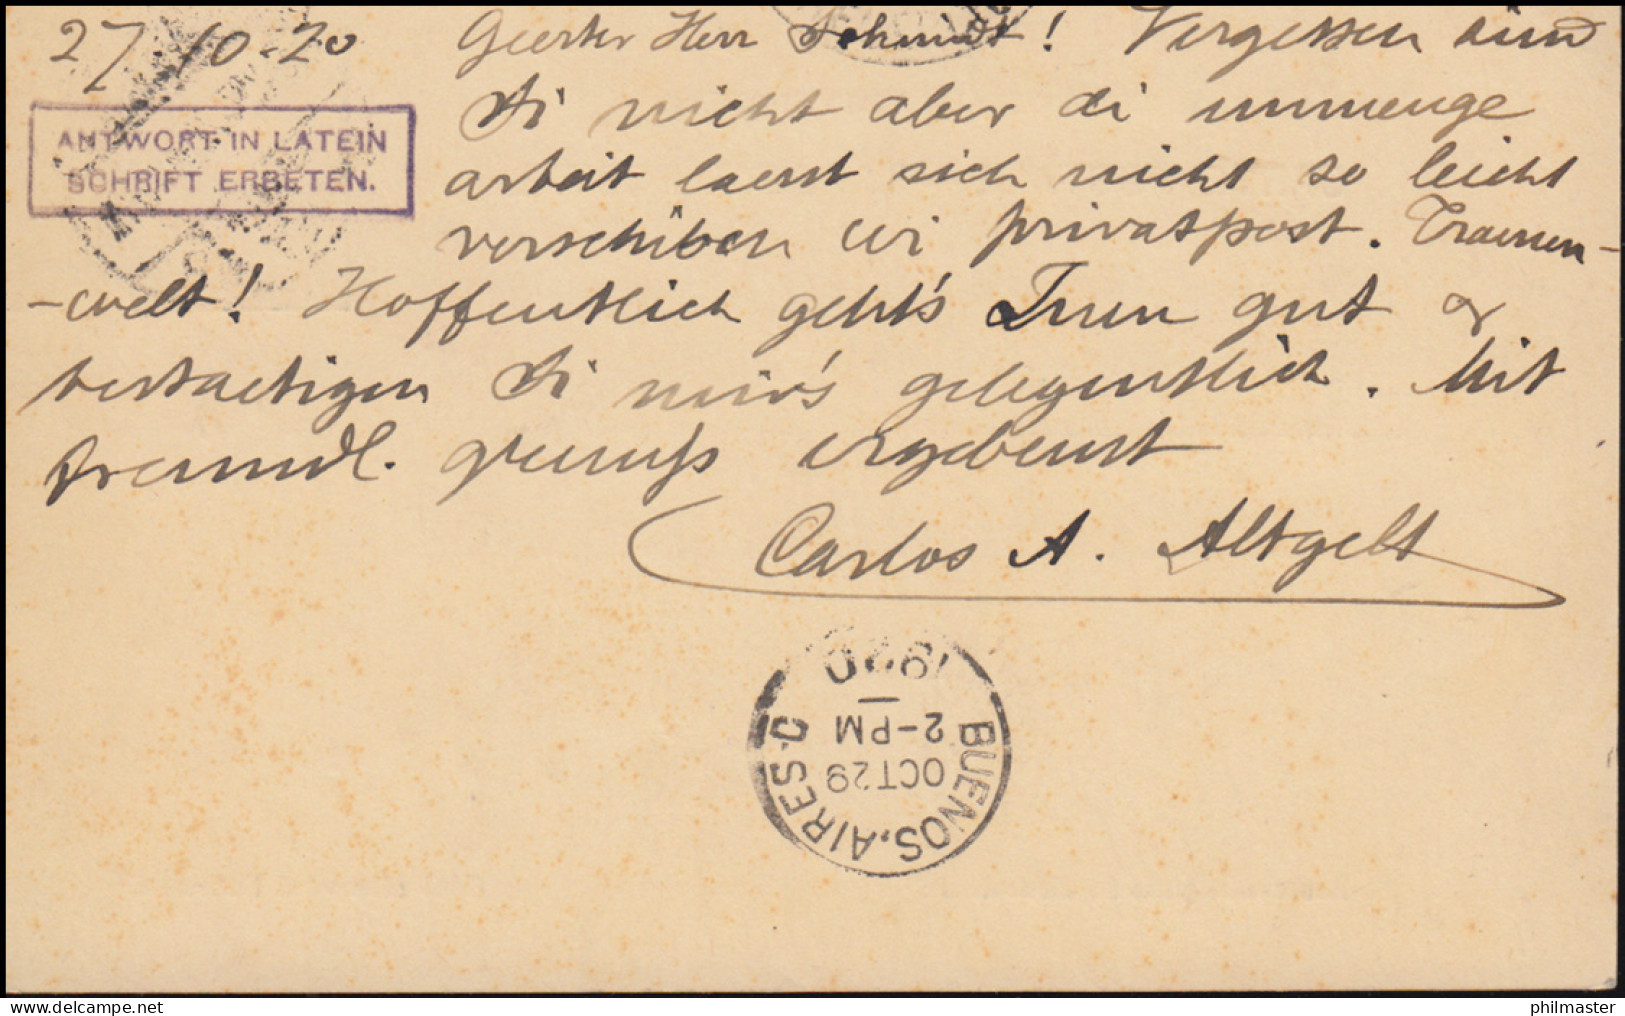 27/10-20 Geerter Herr Schmidt! Vergessen sind
Si nicht aber di unmenge
ANTWORT IN LATEIN
SCHRIFT ERBETEN.
arbeit laesst sich nicht so leicht
verschiben wi privatpost. Traenen-
-welt! Hoffentlich geht's Inen gut &
bestaetigen Si mir's gelegentlich. Mit
freundl. gruess ergebenst
Carlos A. Altgelt
BUENOS. AIRES C
OCT 29
2-PM
1920
philmaster